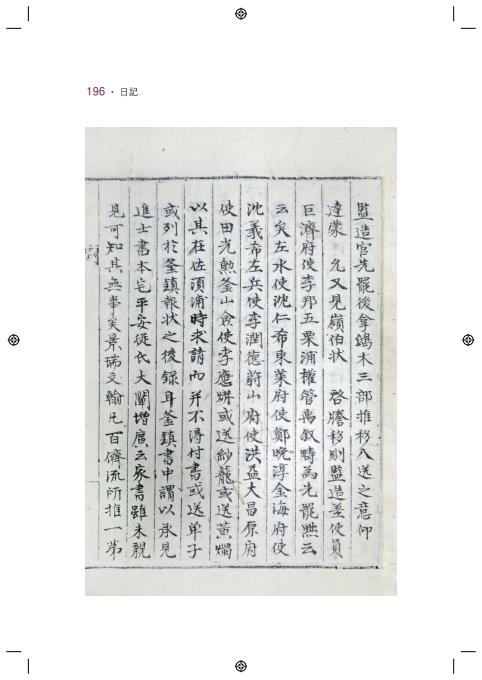 196 • 日記
監造官先罷後拿鳩木三部推移入送之意仰
達蒙 允又見嶺伯狀 啓謄移則監造差使員
巨濟府使李邦五栗浦權管禹叙疇為先罷黜云
云矣左水使沈仁希東萊府使鄭晩淳金海府使
沈義希左兵使李潤德蔚山府使洪益大昌原府
使田光勲釜山僉使李應㶇或送紗籠或送黃燭
以其在佐須浦時求請而并不得付書或送单子
或列於釜鎮報状之後錄耳釜鎮書中謂以承見
進士書本宅平安從氏大闡增廣云家書雖未親
見可知其無事矣景瑞文翰凡百儕流所推一第